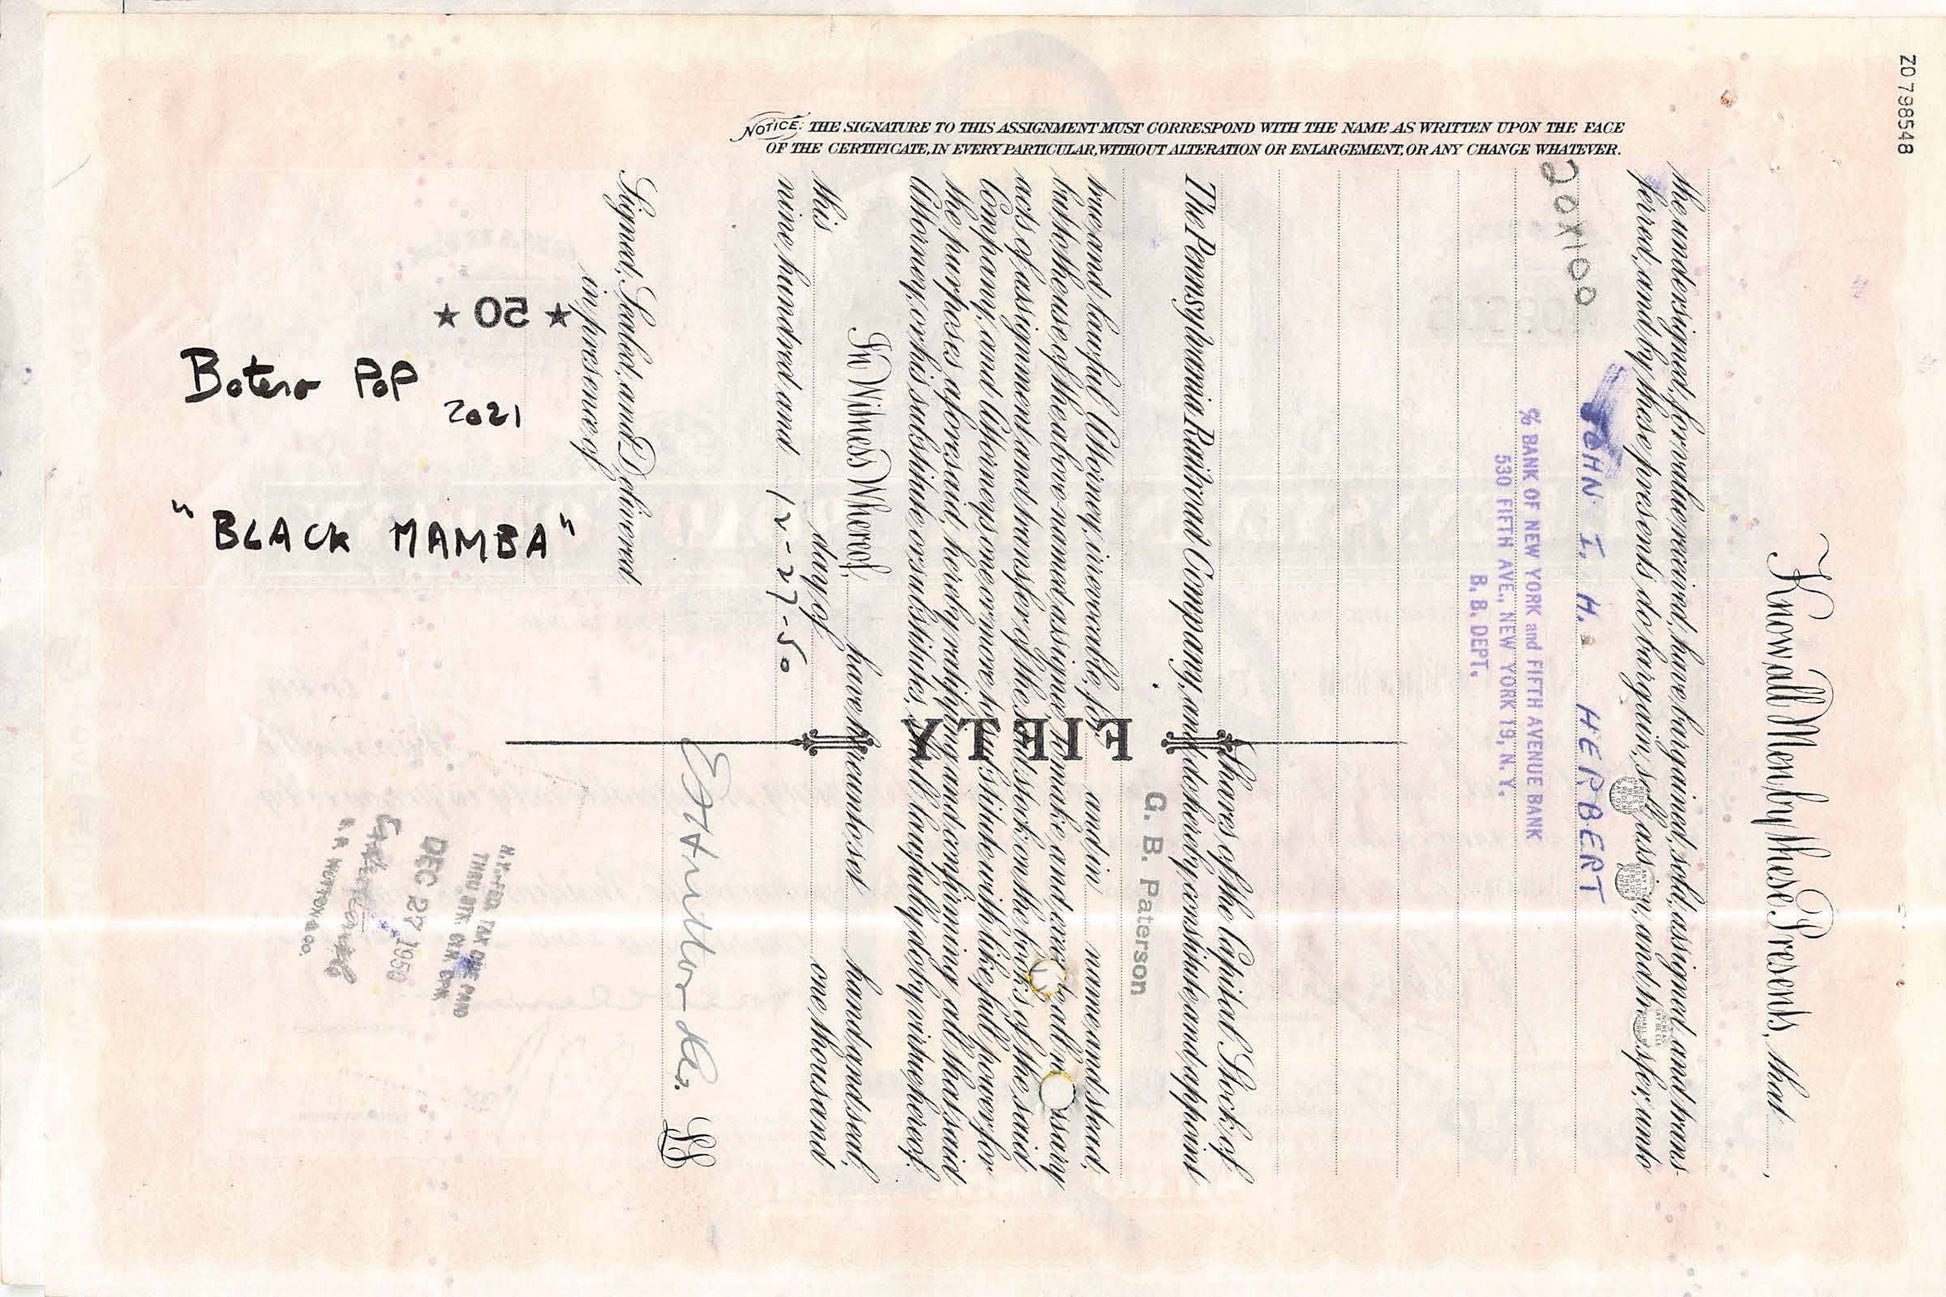 Z0798548
NOTICE: THE SIGNATURE TO THIS ASSIGNMENT MUST CORRESPOND WITH THE NAME AS WRITTEN UPON THE FACE
OF THE CERTIFICATE, IN EVERY PARTICULAR, WITHOUT ALTERATION OR ENLARGEMENT, OR ANY CHANGE WHATEVER.
Know all Men by these Presents, that
the undersigned, for value received, have bargained, sold, assigned and trans-
ferred, and by these presents do bargain, sell, assign, and transfer, unto
JOHN I. H. HERBERT
20X100
% BANK OF NEW YORK and FIFTH AVENUE BANK
530 FIFTH AVE., NEW YORK 19, N. Y.
B. B. DEPT.
Shares of the Capital Stock of
The Pennsylvania Railroad Company, and do hereby constitute and appoint
G. B. Paterson
true and lawful Attorney, irrevocable, for and in name and stead,
but to the use of the above named assignee to make and execute all necessary
acts of assignment and transfer of the said stock on the books of the said
Company, and Attorneys one or more to substitute with like full power for
the purposes aforesaid, hereby ratifying and confirming all that said
Attorney, or his substitute or substitutes, shall lawfully do by virtue hereof.
FIFTY
In Witness Whereof, have hereunto set hand and seal,
this day of one thousand
nine hundred and 12-27-50
Signed, Sealed, and Delivered
in presence of
EF Hutton & Co. LS
★ 50 ★
Botero PoP
2021
"BLACK MAMBA"
N.Y.-FED. TAX DUE PAID
THRU STK. CLR. CPN.
DEC 27 1950
E. F. HUTTON & CO.